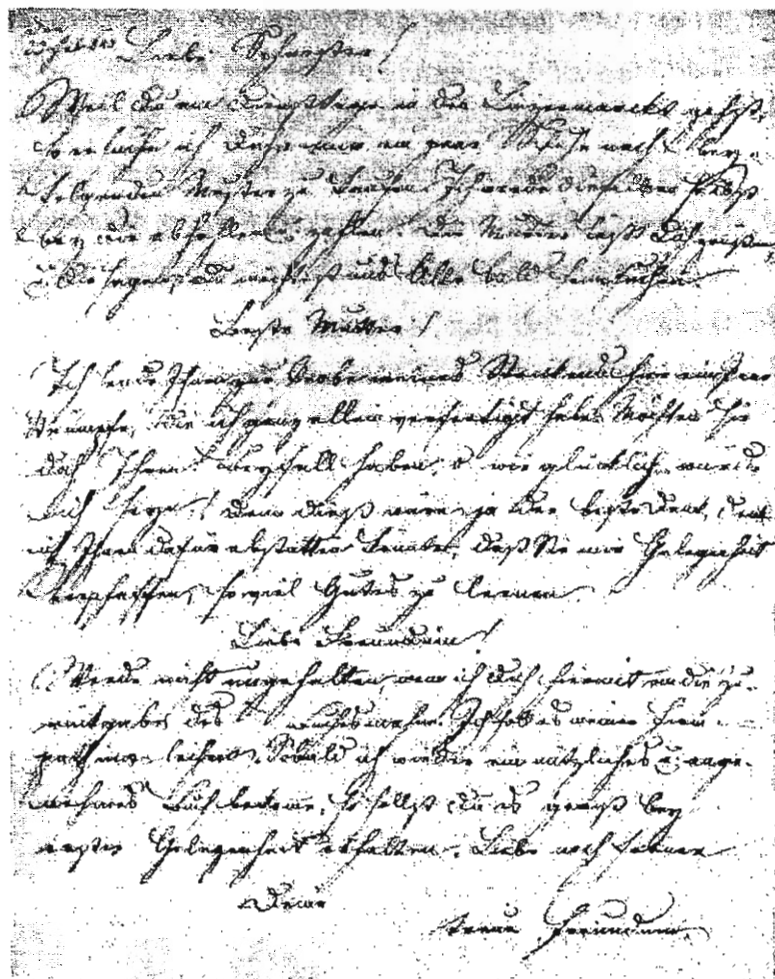 Liebe Schwester!
Weil du am Dienstage in der gehst,
so ersuche ich dich mir ein paar nach bey-
folgenden Muster zu kaufen. Ich werde dieselben selbst
bey dir abhollen u. zahlen. Die Mutter läßt dich grüßen
u. dir sagen, du möchtest uns Alle bald heimsuchen
Beste Mutter!
Ich sende Ihnen zur Probe meines Strickens hier ein Paar
Strümpfe, die ich ganz allein verfertigt habe. Möchten Sie
doch Ihren Beyfall haben, o wie glücklich würde
ich seyn! Denn dieß wäre ja der beste Dank, den
ich Ihnen dafür abstatten könnte, daß Sie mir Gelegenheit
verschaffen, so viel Gutes zu lernen.
Liebe Freundin!
Werde nicht ungehalten, wenn ich dich hiermit um die Zu-
rückgabe des mahne. Ich soll es meiner
leihen. Sobald ich wieder ein nützliches u. ange-
nehmes Buch bekomme, so sollst du es gewiß bey
erster Gelegenheit erhalten. Liebe noch ferner
Deine
treue Freundinn.